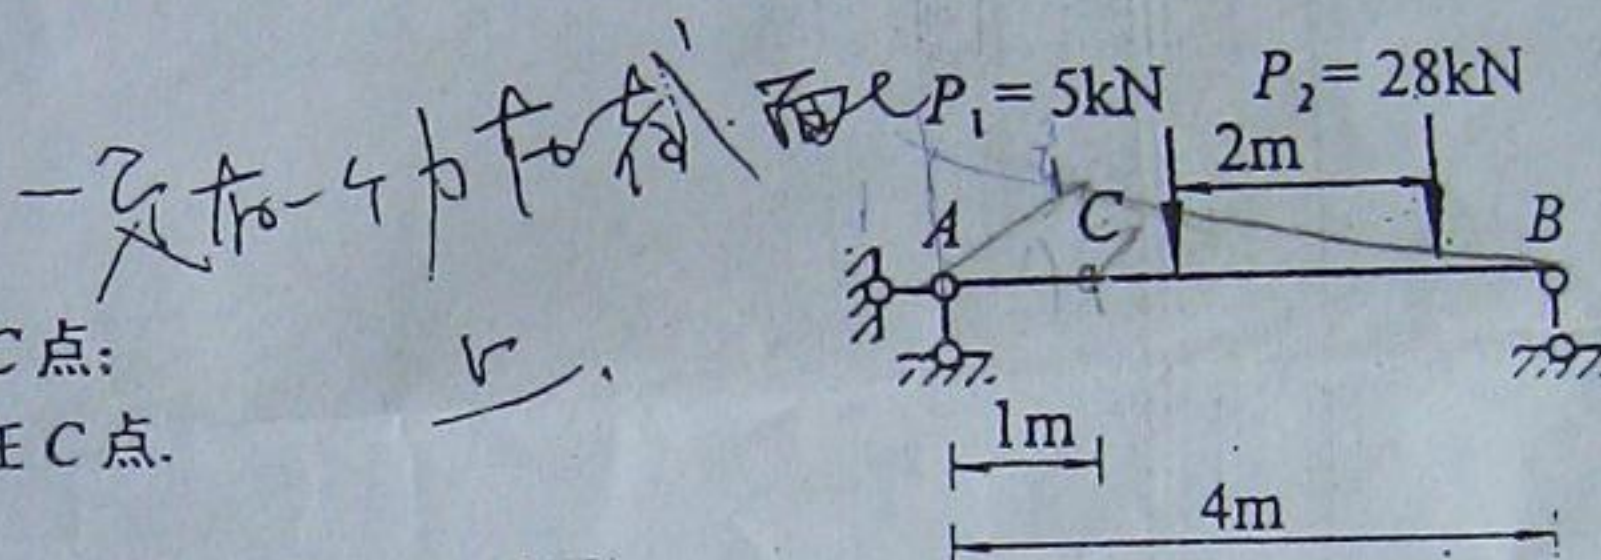 一定有一个力在截面C
P₁=5kN P₂=28kN
2m
A C B
C点;
E C点.
1m
4m